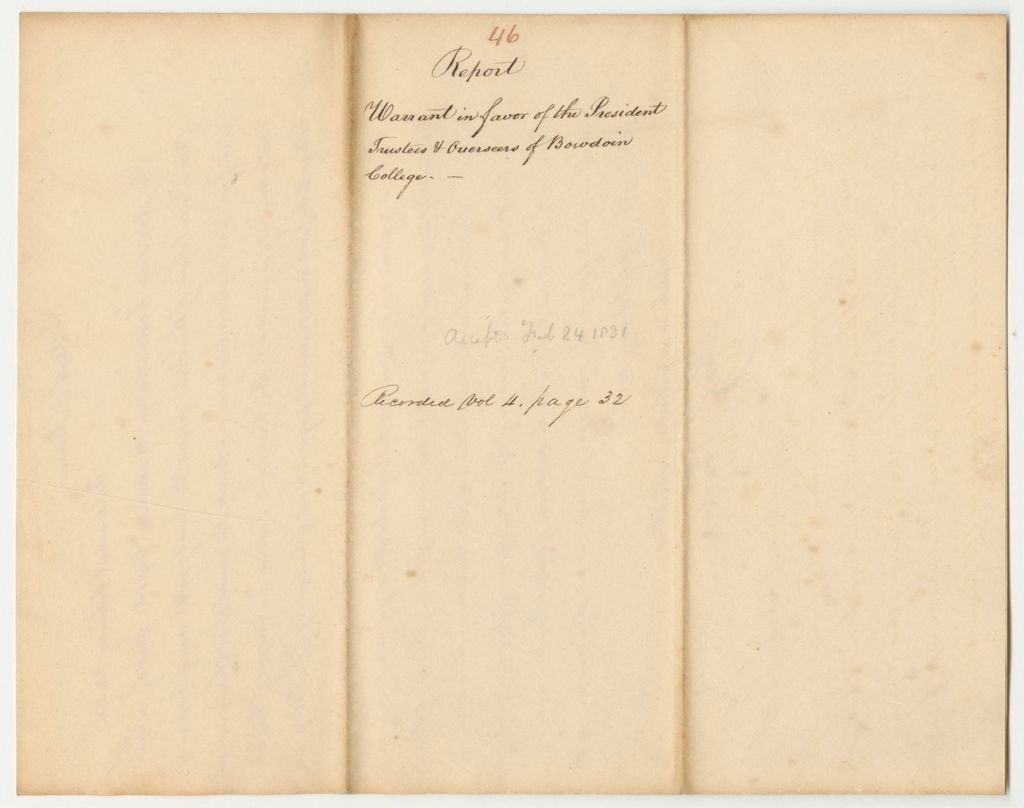 46
Report
Warrant in favor of the President
Trustees & Overseers of Bowdoin
College. —
Feb 24 1831
Recorded Vol 4. page 32